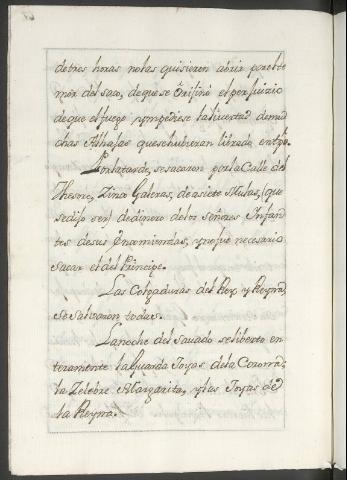 detres horas nolas quisieron abrir porelte
mor del saco, deque se Orijinó el perjuizio
de que el fuego ympidiese la livertad demu
chas Alhajas que se hubieran librado, entpõ.
Por la tarde, se sacaron por la Calle del
Thesro, Zinco Galeras, de a siete Mulas, (que
sedijo ser) de dinero de los señores Infan
tes de sus Encomiendas, y no fue necesario
sacar el del Principe.
Las Colgaduras del Rey y Reyna,
se salvaron todas.
La noche del Savado se liberto en
teramente la Guarda Joyas de la Corona,
la Zelebre Margarita, y las Joyas de
la Reyna.